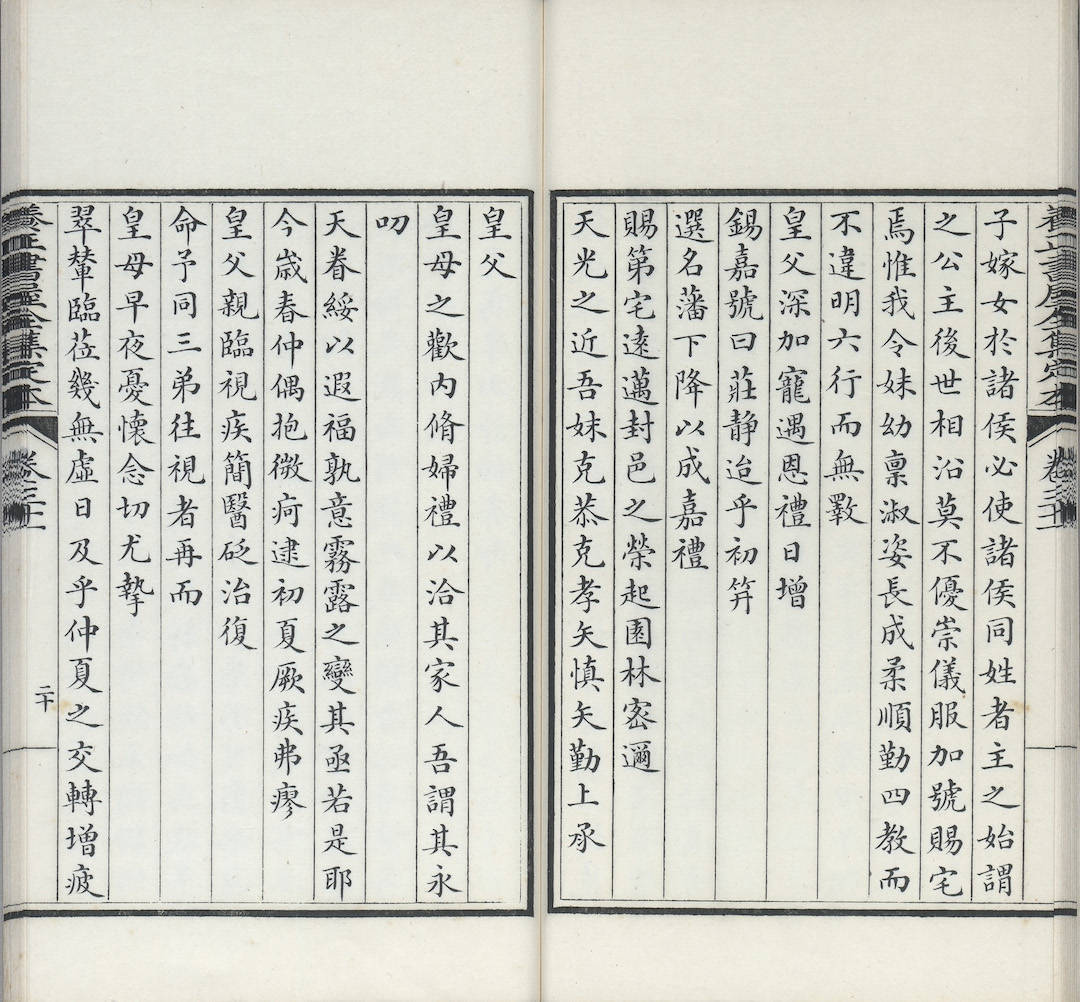 養正書屋全集定本
卷三十
子嫁女於諸侯必使諸侯同姓者主之始謂
之公主後世相沿莫不優崇儀服加號賜宅
焉惟我令妹幼禀淑姿長成柔順勤四教而
不違明六行而無斁
皇父深加寵遇恩禮日增
錫嘉號曰莊静迨乎初笄
選名藩下降以成嘉禮
賜第宅遠邁封邑之榮起園林宻邇
天光之近吾妹克恭克孝矢慎矢勤上承
皇父
皇母之歡内脩婦禮以洽其家人吾謂其永
叨
天眷綏以遐福孰意霧露之變其亟若是耶
今歲春仲偶抱微疴逮初夏厥疾弗瘳
皇父親臨視疾簡醫砭治復
命予同三弟往視者再而
皇母早夜憂懷念切尤摯
翠輦臨莅幾無虛日及乎仲夏之交轉增疲
養正書屋全集定本
卷三十
二十